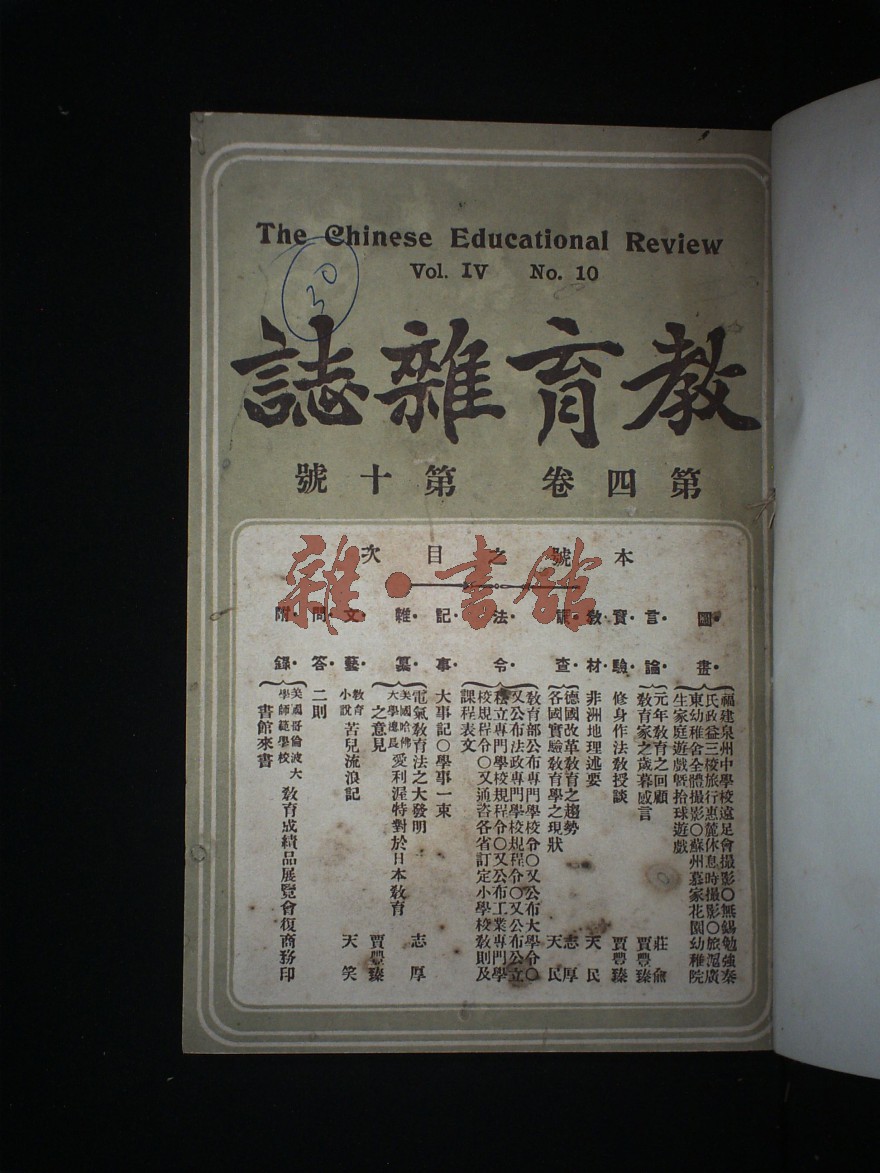 The Chinese Educational Review
Vol. IV No. 10
30
教育雜誌
第四卷 第十號
本號之目次
雜·書館
圖畫
福建泉州中學校遠足會攝影〇無錫勉強泰
氏政益三校旅行惠麓休息時攝影〇旅滬廣
東幼稚舍全體攝影〇蘇州慕家花園幼稚院
生家庭遊戲暨抬球遊戲
言論
元年敎育之回顧 莊俞
敎育家之歲暮感言 賈豐臻
實驗
修身作法敎授談 賈豐臻
敎材
非洲地理述要 天民
調查
德國改革敎育之趨勢 志厚
各國實驗敎育學之現狀 天民
法令
敎育部公布專門學校令〇又公布大學令〇
又公布法政專門學校規程令〇又公布公立
私立專門學校規程令〇又公布工業專門學
校規程令〇又通咨各省訂定小學校敎則及
課程表文
記事
大事記〇學事一束
雜纂
電氣敎育法之大發明 志厚
美國哈佛大學總長愛利渥特對於日本敎育
之意見 賈豐臻
文藝
敎育小說 苦兒流浪記 天笑
問答
二則
附錄
美國哥倫波大學師範學校敎育成績品展覽會復商務印
書館來書